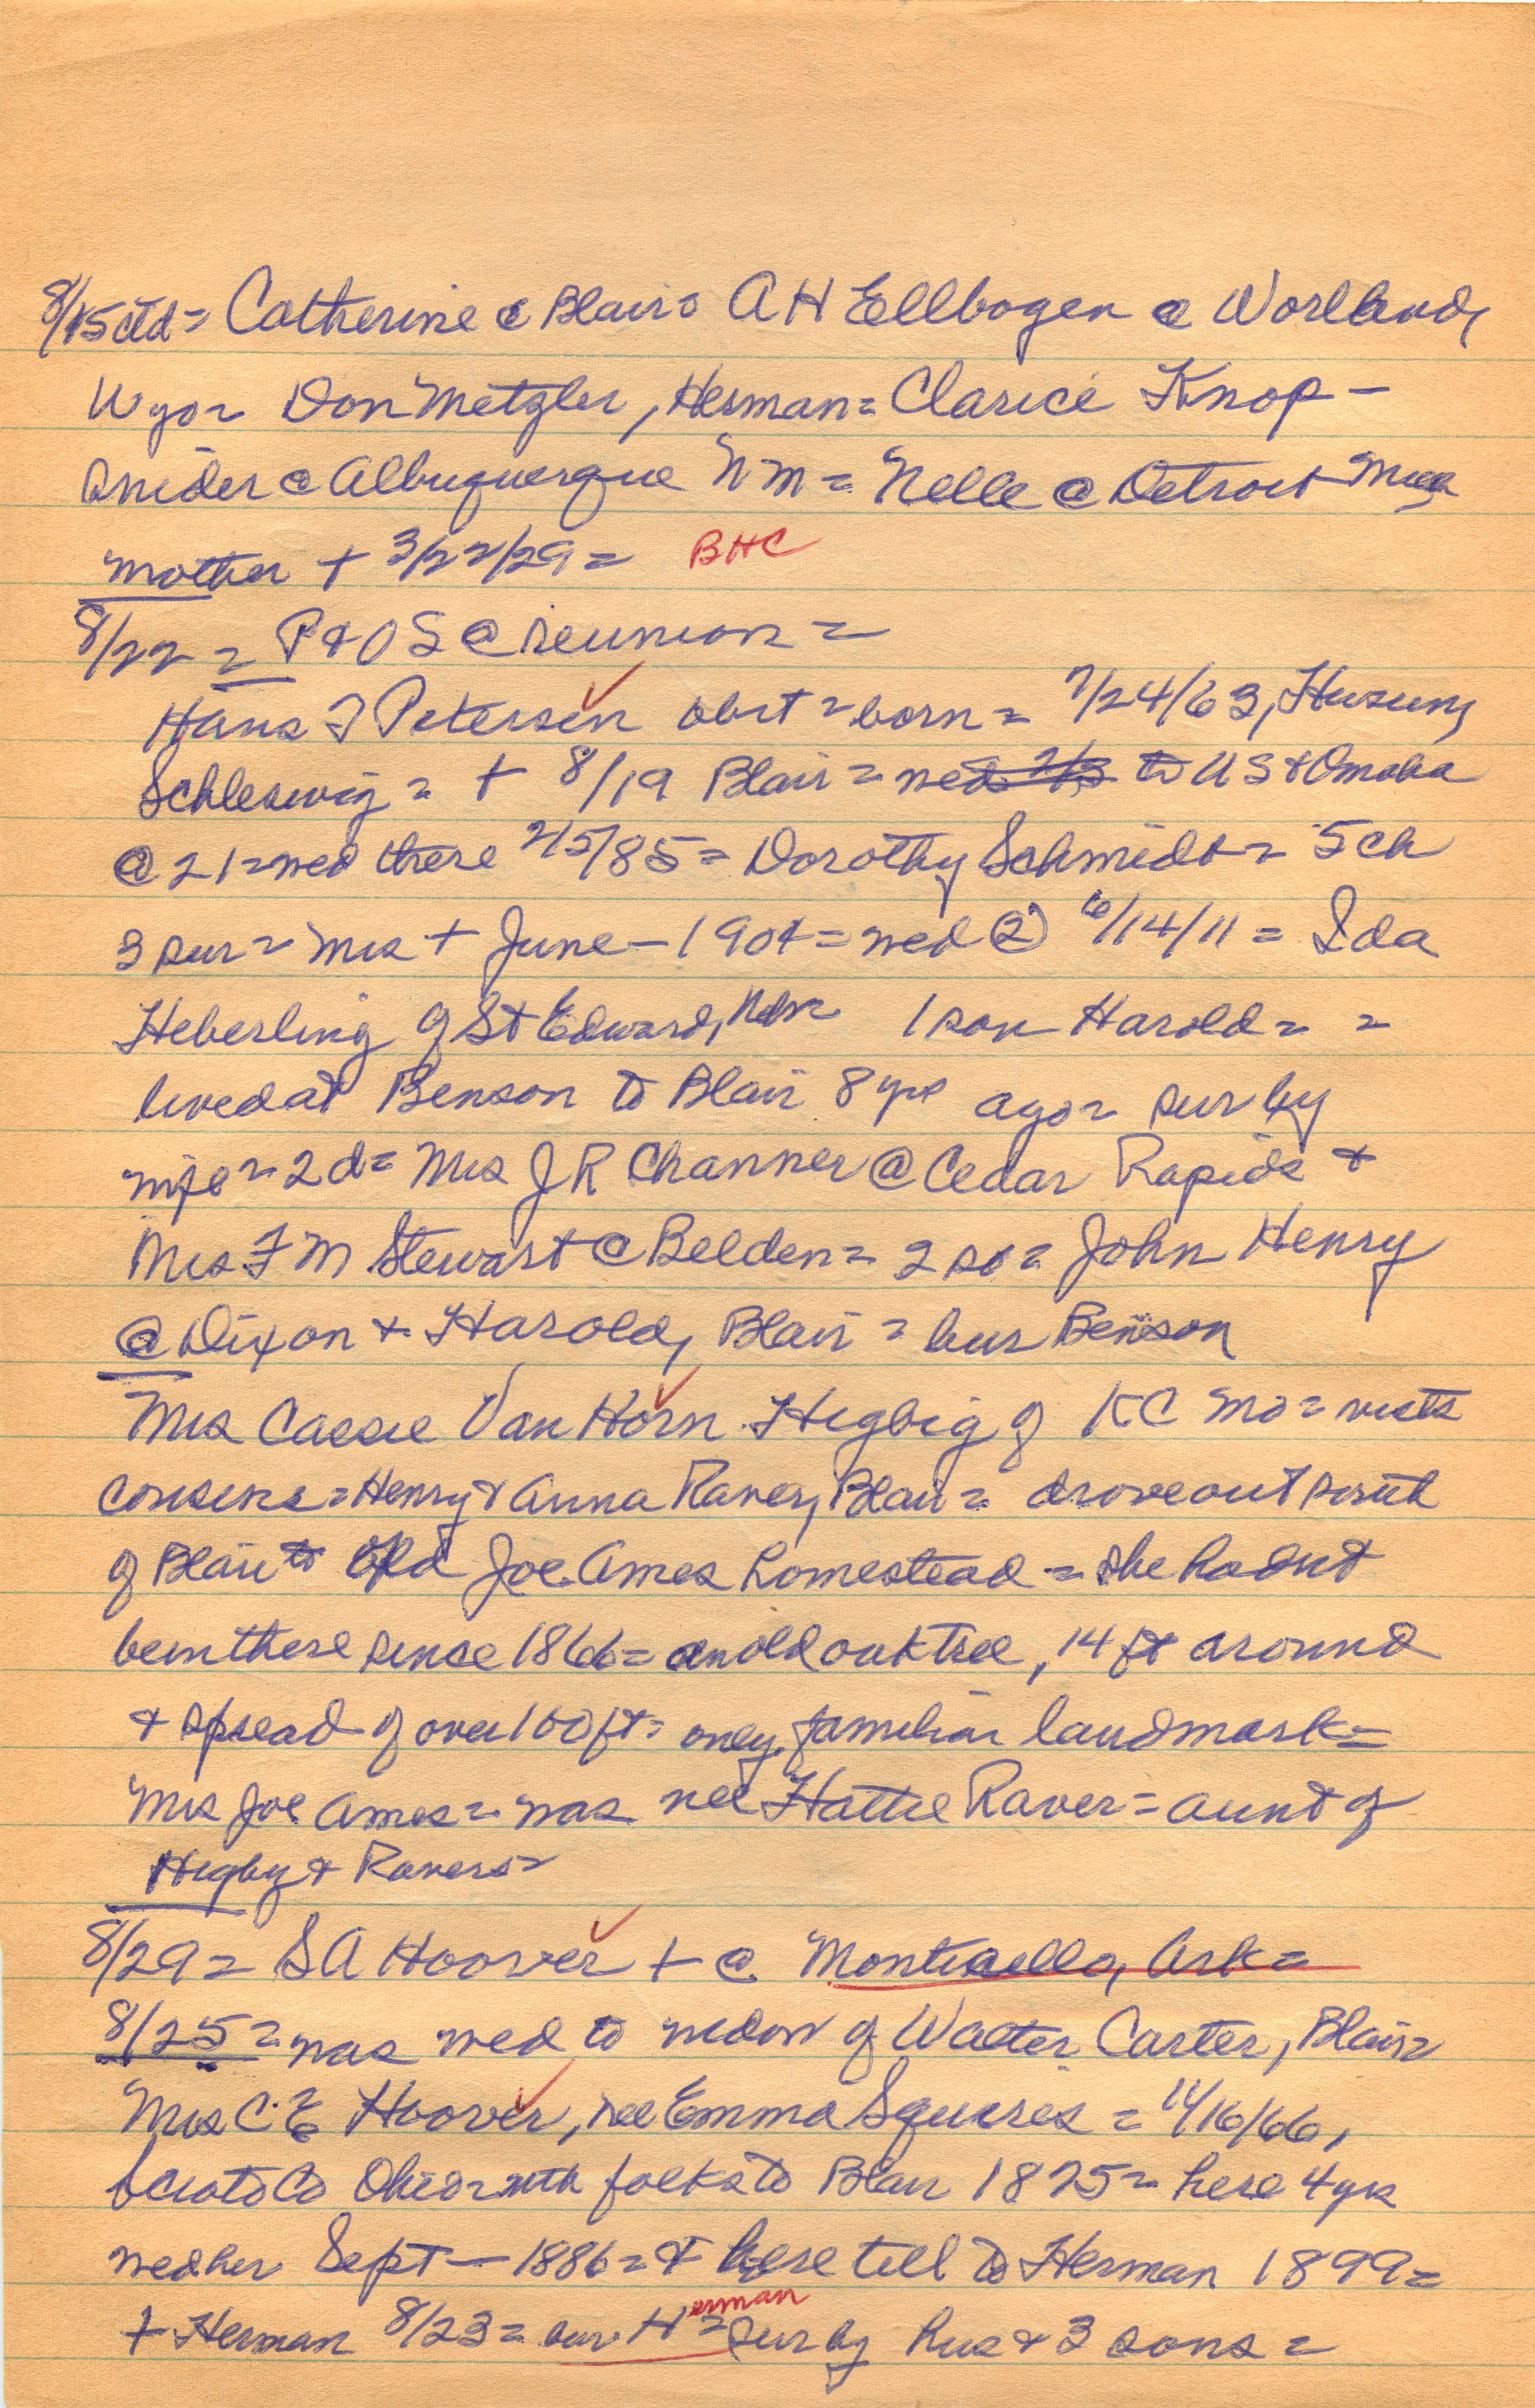 8/15 ctd = Catherine @ Blair = A H Ellbogen @ Worland,
Wyo = Don Metzler, Herman = Clarice Knop -
Snider @ Albuquerque N M = Nelle @ Detroit Mich
Mother + 3/22/29 = BHC
8/22 = P & O S @ reunion =
Hans J Petersen obit = born = 7/24/63, Husum,
Schleswig = + 8/19 Blair = to US & Omaha
@ 21 = wed there 2/5/85 = Dorothy Schmidt = 5 ch
3 sur = Mrs + June - 1904 = wed (2) 6/14/11 = Ida
Heberling of St Edward, Nebr 1 son Harold = =
lived at Benson to Blair 8 yrs ago = sur by
wife = 2 d = Mrs J R Channer @ Cedar Rapids &
Mrs F M Stewart @ Belden = 2 so = John Henry
@ Dixon & Harold, Blair = bur Benson
Mrs Cassie Van Horn Higbig of KC Mo = visits
cousins = Henry & Anna Raver, Blair = drove out south
of Blair to Old Joe Ames homestead = she hadnt
been there since 1866 = an old oak tree, 14 ft around
& spread of over 100 ft = only familiar landmark =
Mrs Joe Ames = was nee Hattie Raver = aunt of
Higby & Ravers =
8/29 = S A Hoover + @ Monticello, Ark =
8/25 = was wed to widow of Walter Carter, Blair =
Mrs C E Hoover, nee Emma Squires = 11/16/66,
Scioto Co Ohio = with folks to Blair 1875 = here 4 yrs
wed her Sept - 1886 = & here till to Herman 1899 =
+ Herman 8/23 = bur Herman = sur by hus & 3 sons =